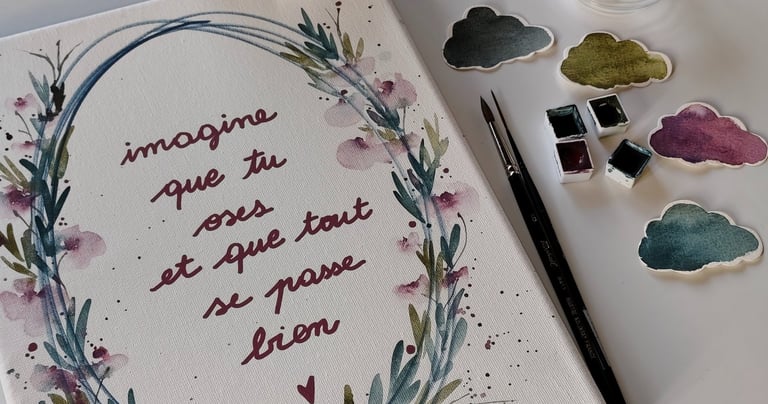 imagine
que tu
oses
et que tout
se passe
bien